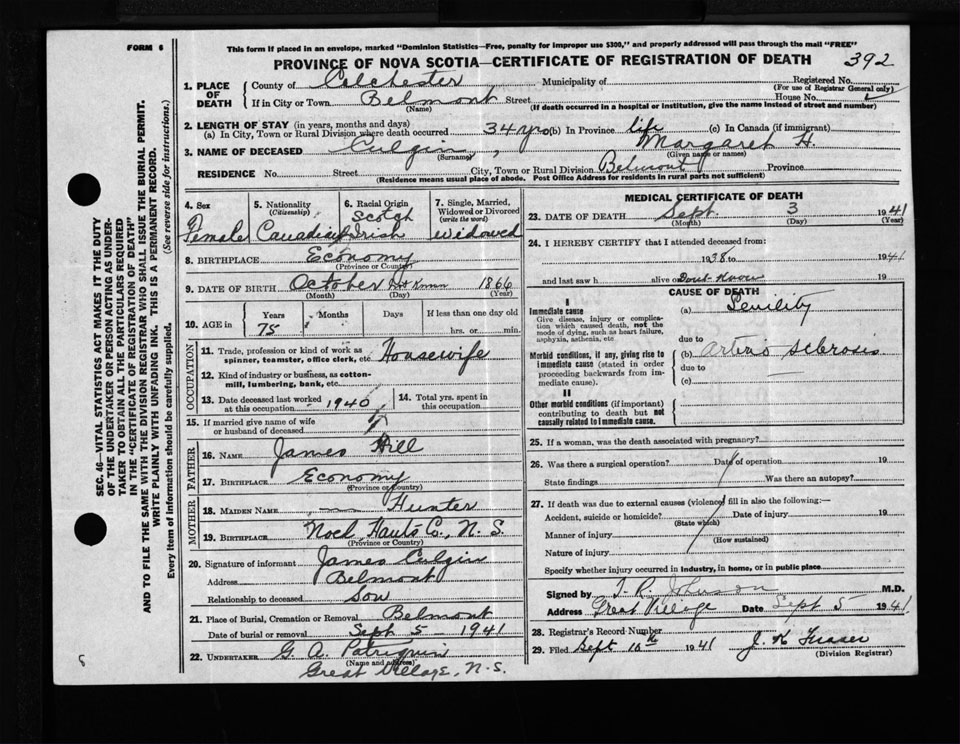 FORM 6
This form if placed in an envelope, marked "Dominion Statistics—Free, penalty for improper use $300," and properly addressed will pass through the mail "FREE"
PROVINCE OF NOVA SCOTIA—CERTIFICATE OF REGISTRATION OF DEATH 392
1. PLACE OF DEATH
County of Colchester Municipality of Registered No.
(For use of Registrar General only)
If in City or Town Belmont Street House No.
(Name) (If death occurred in a hospital or institution, give the name instead of street and number)
2. LENGTH OF STAY (in years, months and days)
(a) In City, Town or Rural Division where death occurred 34 yrs (b) In Province life (c) In Canada (if immigrant)
3. NAME OF DECEASED Culgin, Margaret H.
(Surname) (Given name or names)
RESIDENCE No. Street City, Town or Rural Division Belmont Province
(Residence means usual place of abode. Post Office Address for residents in rural parts not sufficient)
4. Sex
Female
5. Nationality
(Citizenship)
Canadian
6. Racial Origin
Scotch
Irish
7. Single, Married, Widowed or Divorced
(write the word)
widowed
8. BIRTHPLACE Economy
(Province or Country)
9. DATE OF BIRTH October Dont Know 1866
(Month) (Day) (Year)
10. AGE in Years Months Days If less than one day old
75 hrs. or min.
OCCUPATION
11. Trade, profession or kind of work as
spinner, teamster, office clerk, etc. Housewife
12. Kind of industry or business, as cotton-
mill, lumbering, bank, etc.
13. Date deceased last worked
at this occupation 1940
14. Total yrs. spent in
this occupation
15. If married give name of wife
or husband of deceased
FATHER
16. NAME James Hill
17. BIRTHPLACE Economy
(Province or Country)
MOTHER
18. MAIDEN NAME Hunter
19. BIRTHPLACE Noel Hants Co., N. S.
(Province or Country)
20. Signature of informant James Culgin
Address Belmont
Relationship to deceased Son
21. Place of Burial, Cremation or Removal Belmont
Date of burial or removal Sept 5 - 1941
22. UNDERTAKER G. A. Patriquin
(Name and address)
Great Village, N.S.
MEDICAL CERTIFICATE OF DEATH
23. DATE OF DEATH Sept. 3 1941
(Month) (Day) (Year)
24. I HEREBY CERTIFY that I attended deceased from:
1938 to 1941
and last saw h alive Dont Know 19
CAUSE OF DEATH
I
Immediate cause
Give disease, injury or complica-
tion which caused death, not the
mode of dying, such as heart failure,
asphyxia, asthenia, etc.
(a) Senility
due to
Morbid conditions, if any, giving rise to
immediate cause (stated in order
proceeding backwards from im-
mediate cause).
(b) Arterio sclerosis
due to
(c)
II
Other morbid conditions (if important)
contributing to death but not
causally related to immediate cause.
25. If a woman, was the death associated with pregnancy?
26. Was there a surgical operation? Date of operation 19
State findings Was there an autopsy?
27. If death was due to external causes (violence) fill in also the following:—
Accident, suicide or homicide? Date of injury 19
(State which)
Manner of injury
(How sustained)
Nature of injury
Specify whether injury occurred in industry, in home, or in public place
Signed by T. R. Johnson M.D.
Address Great Village Date Sept 5 1941
28. Registrar's Record Number
29. Filed Sept 10th 1941 J. K. Fraser
(Division Registrar)
SEC. 46—VITAL STATISTICS ACT MAKES IT THE DUTY
OF THE UNDERTAKER OR PERSON ACTING AS UNDER-
TAKER TO OBTAIN ALL THE PARTICULARS REQUIRED
IN THE "CERTIFICATE OF REGISTRATION OF DEATH"
AND TO FILE THE SAME WITH THE DIVISION REGISTRAR WHO SHALL ISSUE THE BURIAL PERMIT.
WRITE PLAINLY WITH UNFADING INK. THIS IS A PERMANENT RECORD.
Every item of information should be carefully supplied. (See reverse side for instructions.)